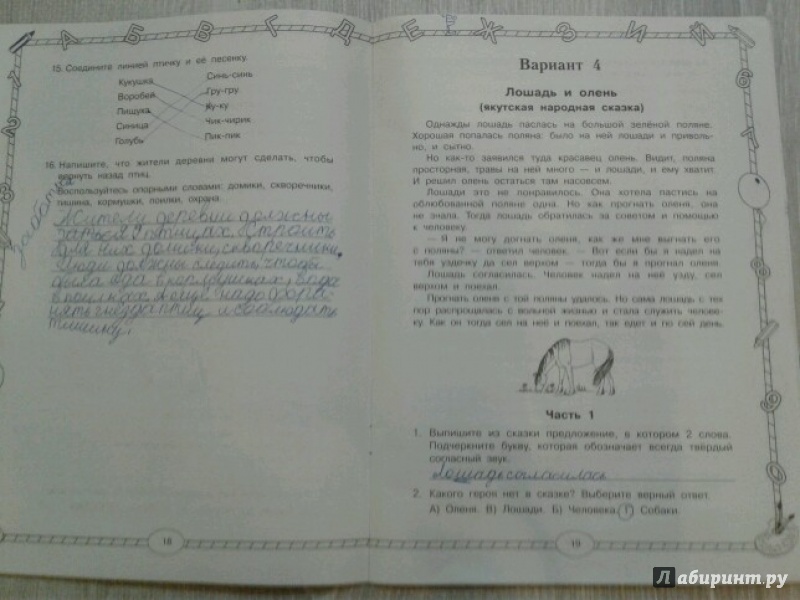 А Б В Г Д Е Ж З И Й
15. Соедините линией птичку и её песенку.
Кукушка Синь-синь
Воробей Гру-гру
Пищуха Ку-ку
Синица Чик-чирик
Голубь Пик-пик
16. Напишите, что жители деревни могут сделать, чтобы
вернуть назад птиц.
Воспользуйтесь опорными словами: домики, скворечники,
тишина, кормушки, поилки, охрана.
Жители деревни должны
о птицах. Строить
для них домики, скворечники.
Люди должны следить, чтобы
была еда в кормушках, вода
в поилках. А еще надо охра-
нять гнёзда птиц и соблюдать
тишину.
18
Вариант 4
Лошадь и олень
(якутская народная сказка)
Однажды лошадь паслась на большой зелёной поляне.
Хорошая попалась поляна: было на ней лошади и приволь-
но, и сытно.
Но как-то заявился туда красавец олень. Видит, поляна
просторная, травы на ней много — и лошади, и ему хватит.
И решил олень остаться там насовсем.
Лошади это не понравилось. Она хотела пастись на
облюбованной поляне одна. Но как прогнать оленя, она
не знала. Тогда лошадь обратилась за советом и помощью
к человеку.
— Я не могу догнать оленя, как же мне выгнать его
с поляны? — ответил человек. — Вот если бы я надел на
тебя уздечку да сел верхом — тогда бы я прогнал оленя.
Лошадь согласилась. Человек надел на неё узду, сел
верхом и поехал.
Прогнать оленя с той поляны удалось. Но сама лошадь с тех
пор распрощалась с вольной жизнью и стала служить челове-
ку. Как он тогда сел на неё и поехал, так едет и по сей день.
Часть 1
1. Выпишите из сказки предложение, в котором 2 слова.
Подчеркните букву, которая обозначает всегда твёрдый
согласный звук.
Лошадь согласилась
2. Какого героя нет в сказке? Выберите верный ответ.
А) Оленя. В) Лошади. Б) Человека. Г) Собаки.
19
Лабиринт.ру